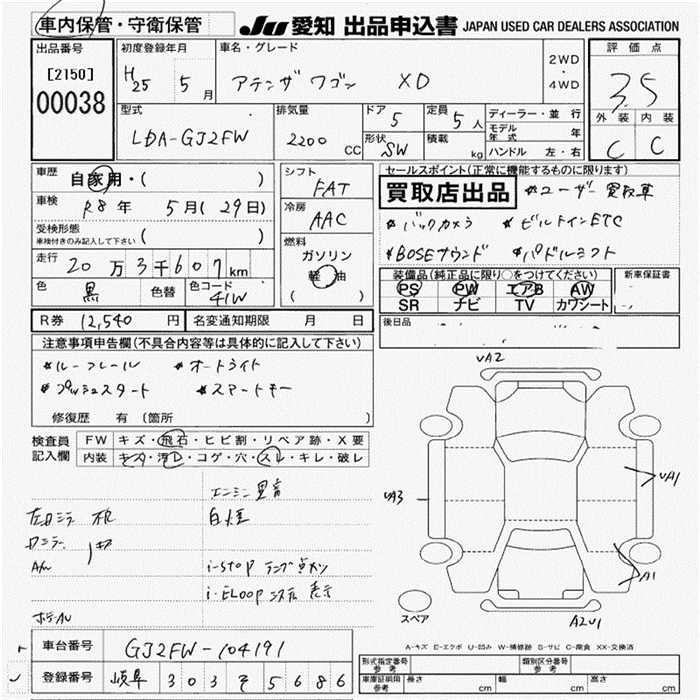 車内保管・守衛保管
JU 愛知 出品申込書 JAPAN USED CAR DEALERS ASSOCIATION
出品番号
[2150]
00038
初度登録年月
H25 5 月
車名・グレード
アテンザ ワゴン XD
2WD
・
4WD
評価点
3.5
外装 内装
C C
型式
LDA-GJ2FW
排気量
2200 CC
ドア 5
形状 SW
定員 5 人
積載 kg
ディーラー・並行
モデル年式 年
ハンドル 左・右
車歴
自家用・( )
車検
R8 年 5 月 (29日)
受検形態
車検付きのみ記入して下さい ( )
走行
20 万 3 千 6 0 7 km
色 黒 色替 色コード 41W
シフト
FAT
冷房
AAC
燃料
ガソリン
軽油
( )
セールスポイント(正常に機能するものに限ります)
買取店出品 *ユーザー買取車
*バックカメラ *ビルトインETC
*BOSEサウンド *パドルシフト
装備品(純正品に限り○をつけてください)
PS PW エアB AW
SR ナビ TV カワシート
新車保証書
R券 12,540 円 名変通知期限 月 日
後日品
注意事項申告欄(不具合内容等は具体的に記入して下さい)
*ルーフレール *オートライト
*プッシュスタート *スマートキー
修復歴 有 (箇所
検査員
記入欄
FW キズ・飛石・ヒビ割・リペア跡・X要
内装 キズ・汚レ・コゲ・穴・スレ・キレ・破レ
エンジン異音
白煙
i-stop ランプ点灯
i-ELOOP 表示
VA2
VA3
VA1
A1
A2U1
スペア
A-キズ E-エクボ U-凹み W-補修跡 S-サビ C-腐食 XX-交換済
車台番号 GJ2FW-104191
登録番号 岐阜 303 そ 5686
形式指定番号
参考
類別区分番号
参考
車庫証明用
参考
長さ cm
幅 cm
高さ cm